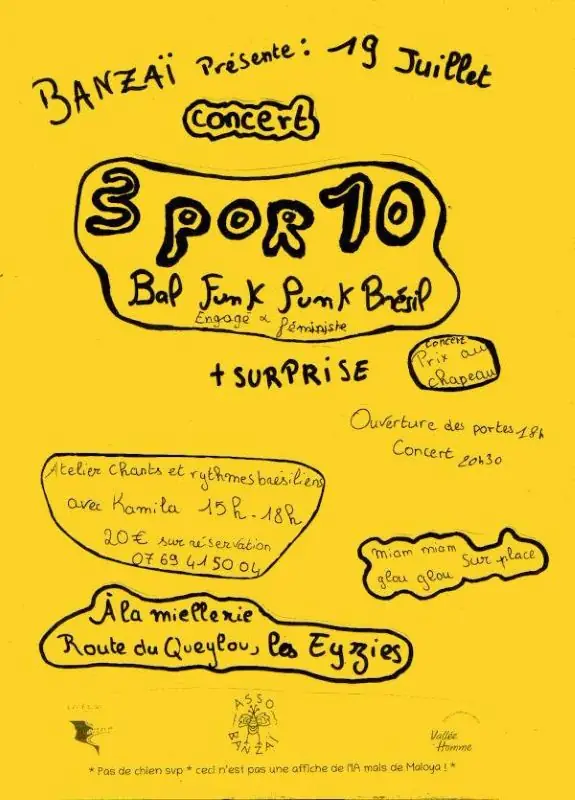 BANZAÏ Présente : 19 Juillet
concert
3 por 10
Bal Funk Punk Brésil
Engagé & féministe
+ SURPRISE
Concert
Prix au
chapeau
Ouverture des portes 18h
Concert 20h30
Atelier Chants et rythmes brésiliens
avec Kamila 15h-18h
20€ sur réservation
07 69 41 50 04
miam miam
glou glou sur place
À la miellerie
Route du Queylou, les Eyzies
ASSO
BANZAÏ
Vallée
Homme
* Pas de chien svp * ceci n'est pas une affiche de l'IA mais de Maloya ! *